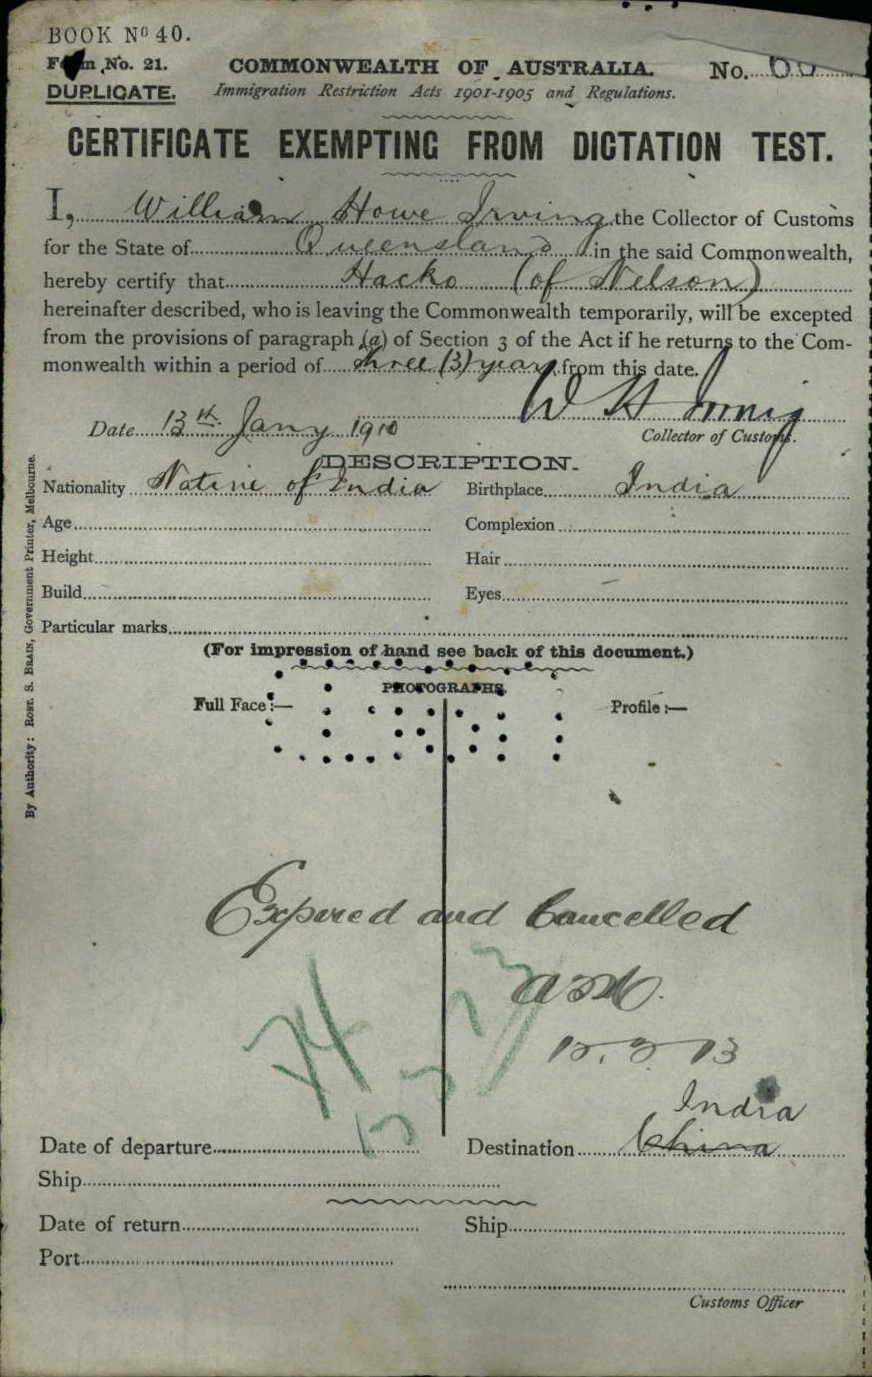 BOOK Nº 40.
Form No. 21.
COMMONWEALTH OF AUSTRALIA.
No.
DUPLICATE.
Immigration Restriction Acts 1901-1905 and Regulations.
CERTIFICATE EXEMPTING FROM DICTATION TEST.
I, William Howe Irving, the Collector of Customs
for the State of Queensland in the said Commonwealth,
hereby certify that Hacko (of Nelson)
hereinafter described, who is leaving the Commonwealth temporarily, will be excepted
from the provisions of paragraph (a) of Section 3 of the Act if he returns to the Com-
monwealth within a period of three (3) years from this date.
W H Irving
Date 13th Jany 1910
Collector of Customs.
DESCRIPTION.
Nationality Native of India Birthplace India
Age Complexion
Height Hair
Build Eyes
Particular marks
(For impression of hand see back of this document.)
PHOTOGRAPHS.
Full Face:— Profile:—
Expired and Cancelled
12.3.13
India
Date of departure Destination China
Ship
Date of return Ship
Port
Customs Officer
By Authority: ROBT. S. BRAIN, Government Printer, Melbourne.